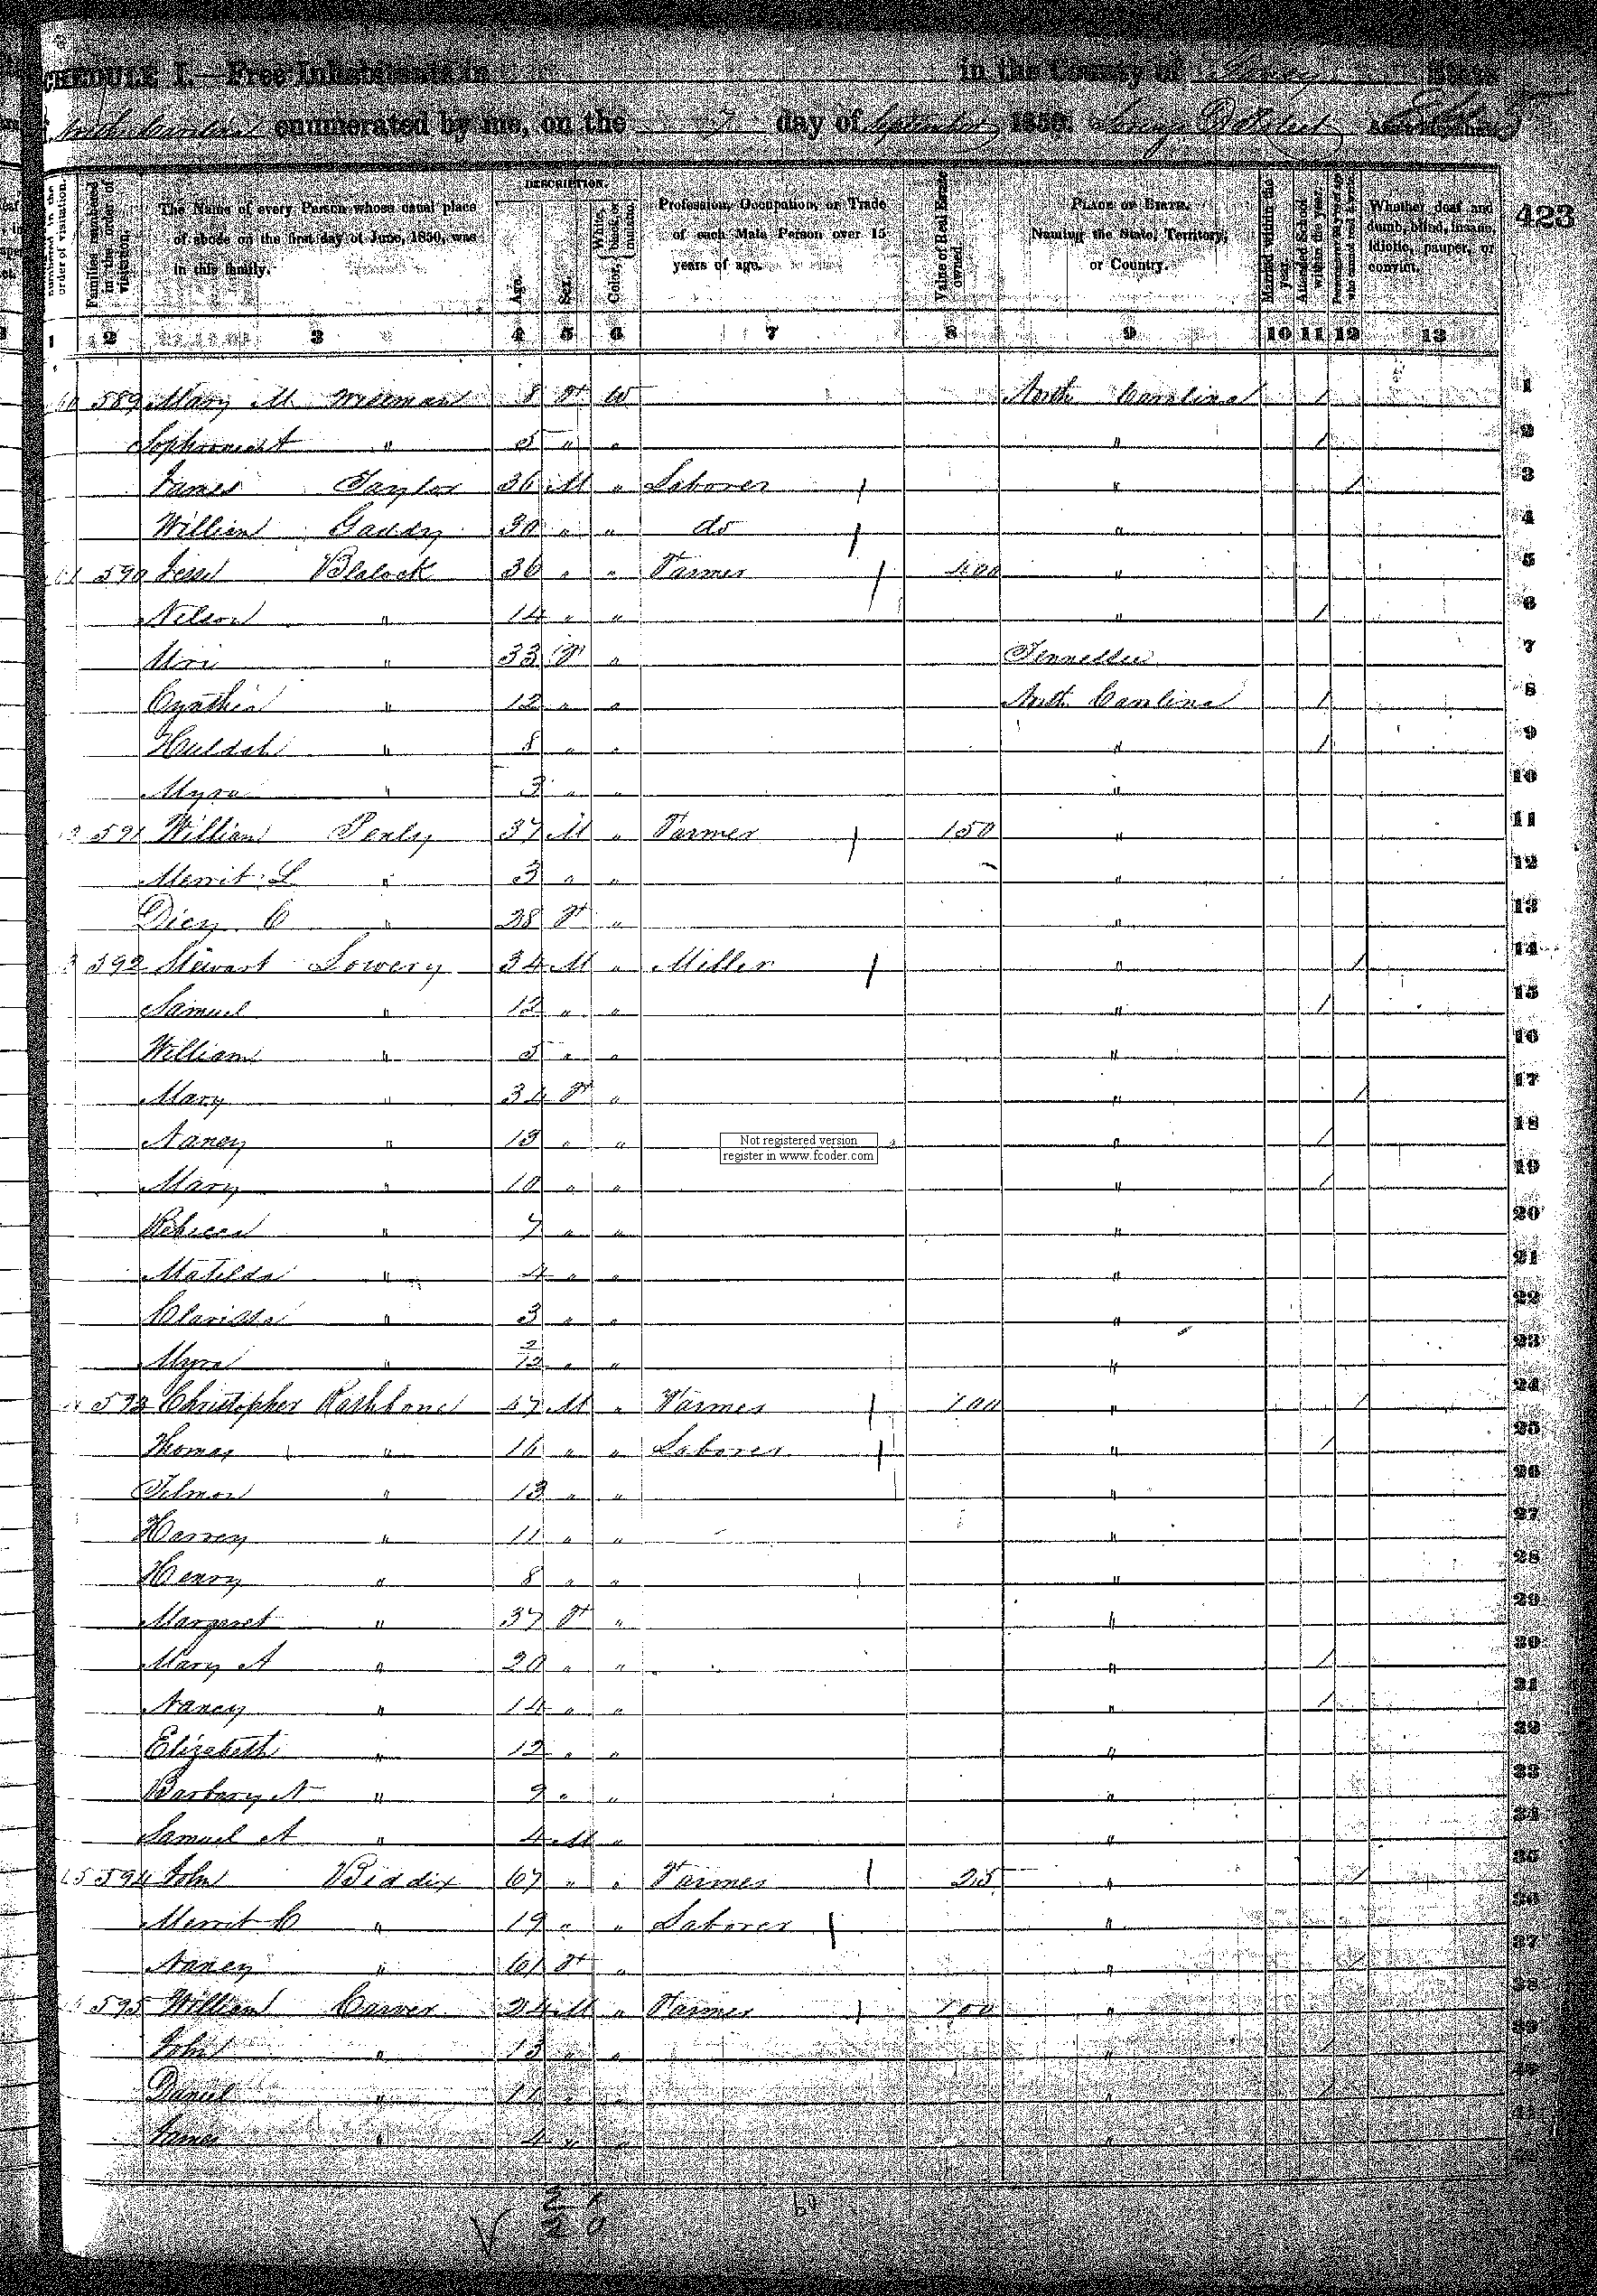 SCHEDULE I.—Free Inhabitants in in the County of Yancey State
North Carolina enumerated by me, on the 7 day of September 1850.
423
DESCRIPTION.
The Name of every Person whose usual place of abode on the first day of June, 1850, was in this family.
Families numbered in the order of visitation.
Age.
Sex.
Color, White, black, or mulatto.
Profession, Occupation, or Trade of each Male Person over 15 years of age.
Value of Real Estate owned.
PLACE OF BIRTH. Naming the State, Territory, or Country.
Married within the year.
Attended School within the year.
Whether deaf and dumb, blind, insane, idiotic, pauper, or convict.
1 2 3 4 5 6 7 8 9 10 11 12 13
589 Mary M Wiseman 8 F W North Carolina / 1
A " 5 " " " / 2
James Taylor 36 M " Laborer " / 3
William Gaddy 30 " " do " 4
590 Jesse Blalock 36 " " Farmer 400 " 5
Nelson " 14 " " " / 6
" 33 F " Tennessee 7
Cynthia " 12 " " North Carolina / 8
Huldah " 8 " " " / 9
Myra " 3 " " " 10
591 William Penly 37 M " Farmer 150 " 11
Merrit L " 3 " " " 12
Dicy C " 28 F " " 13
592 Stewart Lowery 34 M " Miller " / 14
Samuel " 12 " " " / 15
William " 5 " " " 16
Mary " 34 F " " / 17
Nancy " 13 " " " / 18
Not registered version
register in www.fcoder.com
Mary " 10 " " " / 19
Rebecca " 7 " " " 20
Matilda " 4 " " " 21
Clarissa " 3 " " " 22
Myra " 2/12 " " " 23
593 Christopher Rathbone 47 M " Farmer 100 " / 24
Thomas " 16 " " Laborer " / 25
Tilmon " 13 " " " 26
Harvey " 11 " " " 27
Henry " 8 " " " 28
Margaret " 37 F " " 29
Mary A " 20 " " " / 30
Nancy " 14 " " " / 31
Elizabeth " 12 " " " 32
Barbary A " 9 " " " 33
Samuel A " 4 M " " 34
594 John Biddix 67 " " Farmer 25 " / 35
Merrit C " 19 " " Laborer " 36
Nancy " 61 F " " / 37
595 William Carver 24 M " Farmer 100 " 38
John " 13 " " " / 39
Daniel " 11 " " " / 40
James " 4 " " " 41